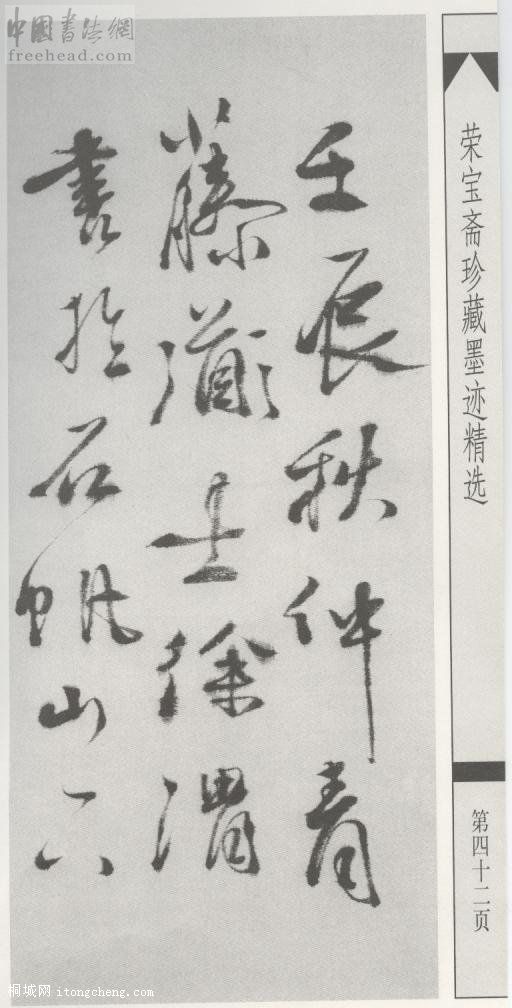 中國書法網
freehead.com
荣宝斋珍藏墨迹精选
壬辰秋仲青
藤道士徐渭
書於石帆山下
第四十二页
桐城网 itongcheng.com